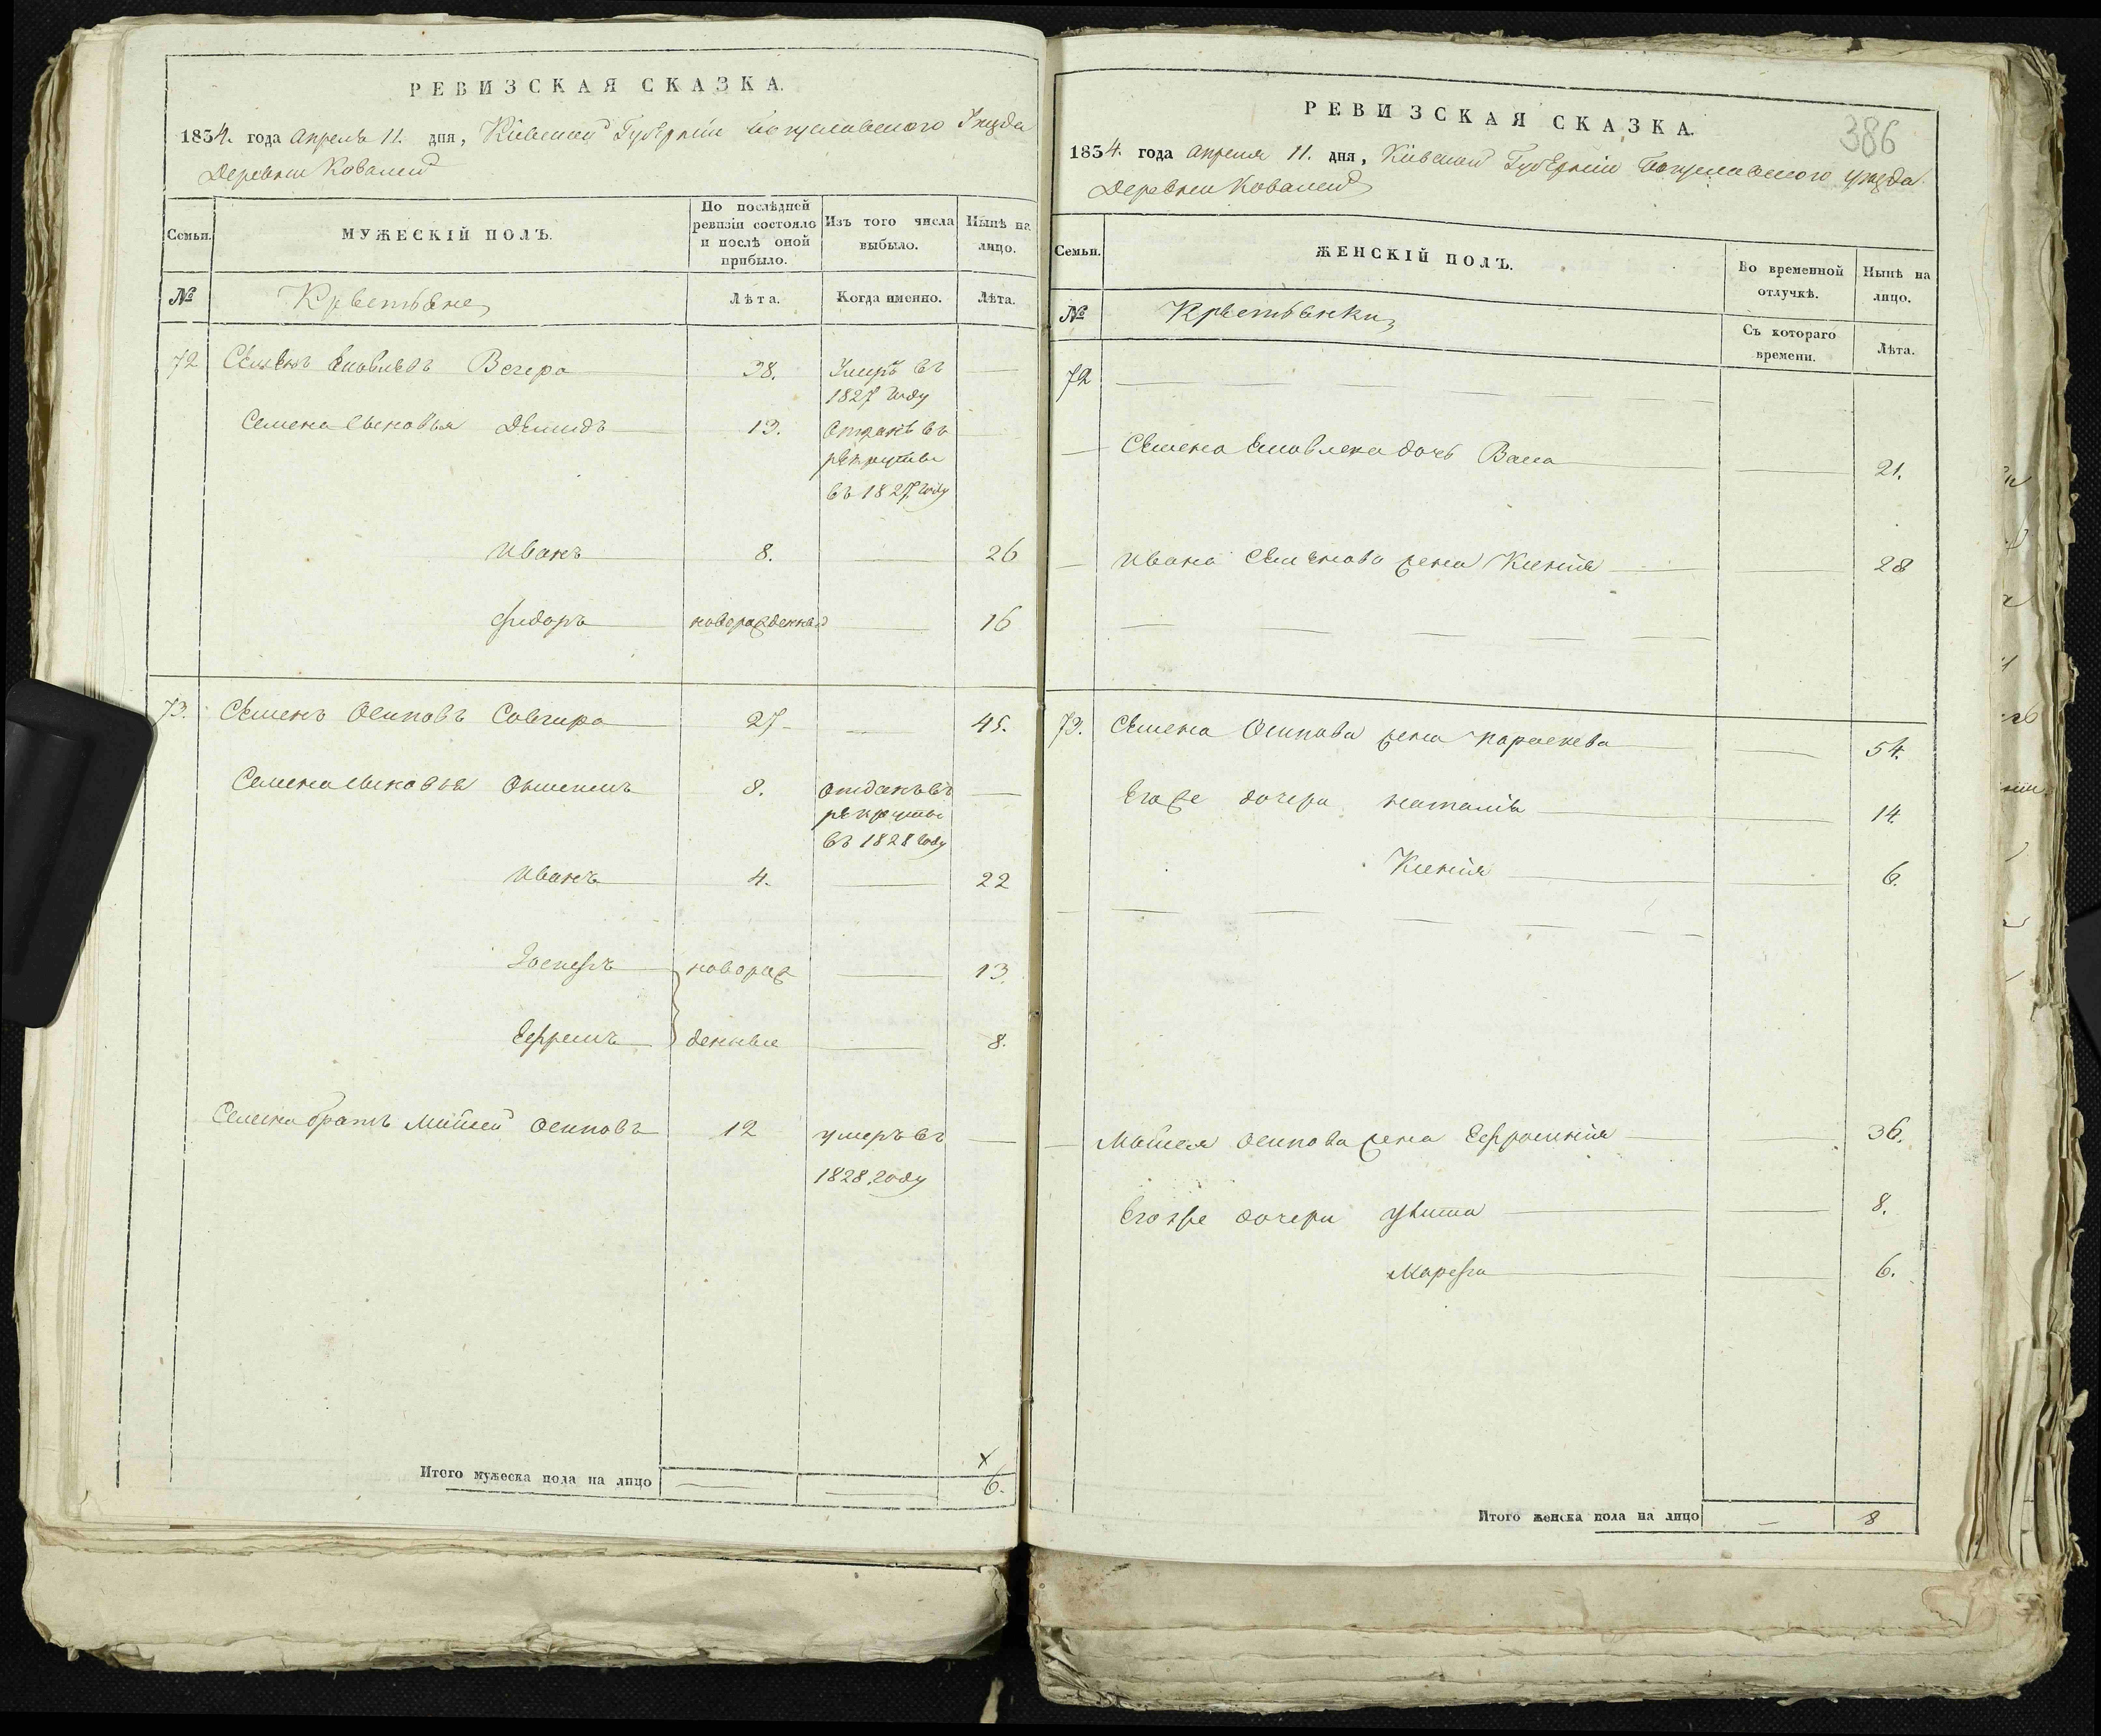 РЕВИЗСКАЯ СКАЗКА.
1834. года Апреля 11. дня, Кіевской Губерніи Богуславского Уезда
Деревни Ковалей
Семьи.
МУЖЕСКІЙ ПОЛЪ.
По послѣдней ревизіи состояло и послѣ оной прибыло.
Изъ того числа выбыло.
Нынѣ на лицо.
№
Крестьяне
Лѣта.
Когда именно.
Лѣта.
72 Семенъ Яковлевъ Вечера 38. Умеръ въ
1827 году
Семена сыновья Демидъ 13. Отданъ въ
рекруты
въ 1827. году
Иванъ 8. 26
Фидоръ новорожденный 16
73. Семенъ Осиповъ Совгира 27 45.
Семена сыновья 8. отданъ въ
рекруты
въ 1828 году
Иванъ 4. 22
Іосифъ новорож 13.
Ефремъ денные 8.
Семена братъ Мойсей Осиповъ 12 умеръ въ
1828. году
х
Итого мужеска пола на лицо 6.
РЕВИЗСКАЯ СКАЗКА.
386
1834. года Апреля 11. дня, Кіевской Губерніи Богуславского уезда
Деревни Ковалей
Семьи.
ЖЕНСКІЙ ПОЛЪ.
Во временной отлучкѣ.
Нынѣ на лицо.
№
Крестьянки
Съ котораго времени.
Лѣта.
72
Семена Яковлева дочь Васса 21.
Ивана Семенова жена Ксенія 28
73. Семена Осипова жена Параскева 54.
Егоже дочери Наталія 14.
Ксенія 6.
Мойсея Осипова жена Ефросинія 36.
Егоже дочери Улита 8.
Марфа 6.
Итого женска пола на лицо 8